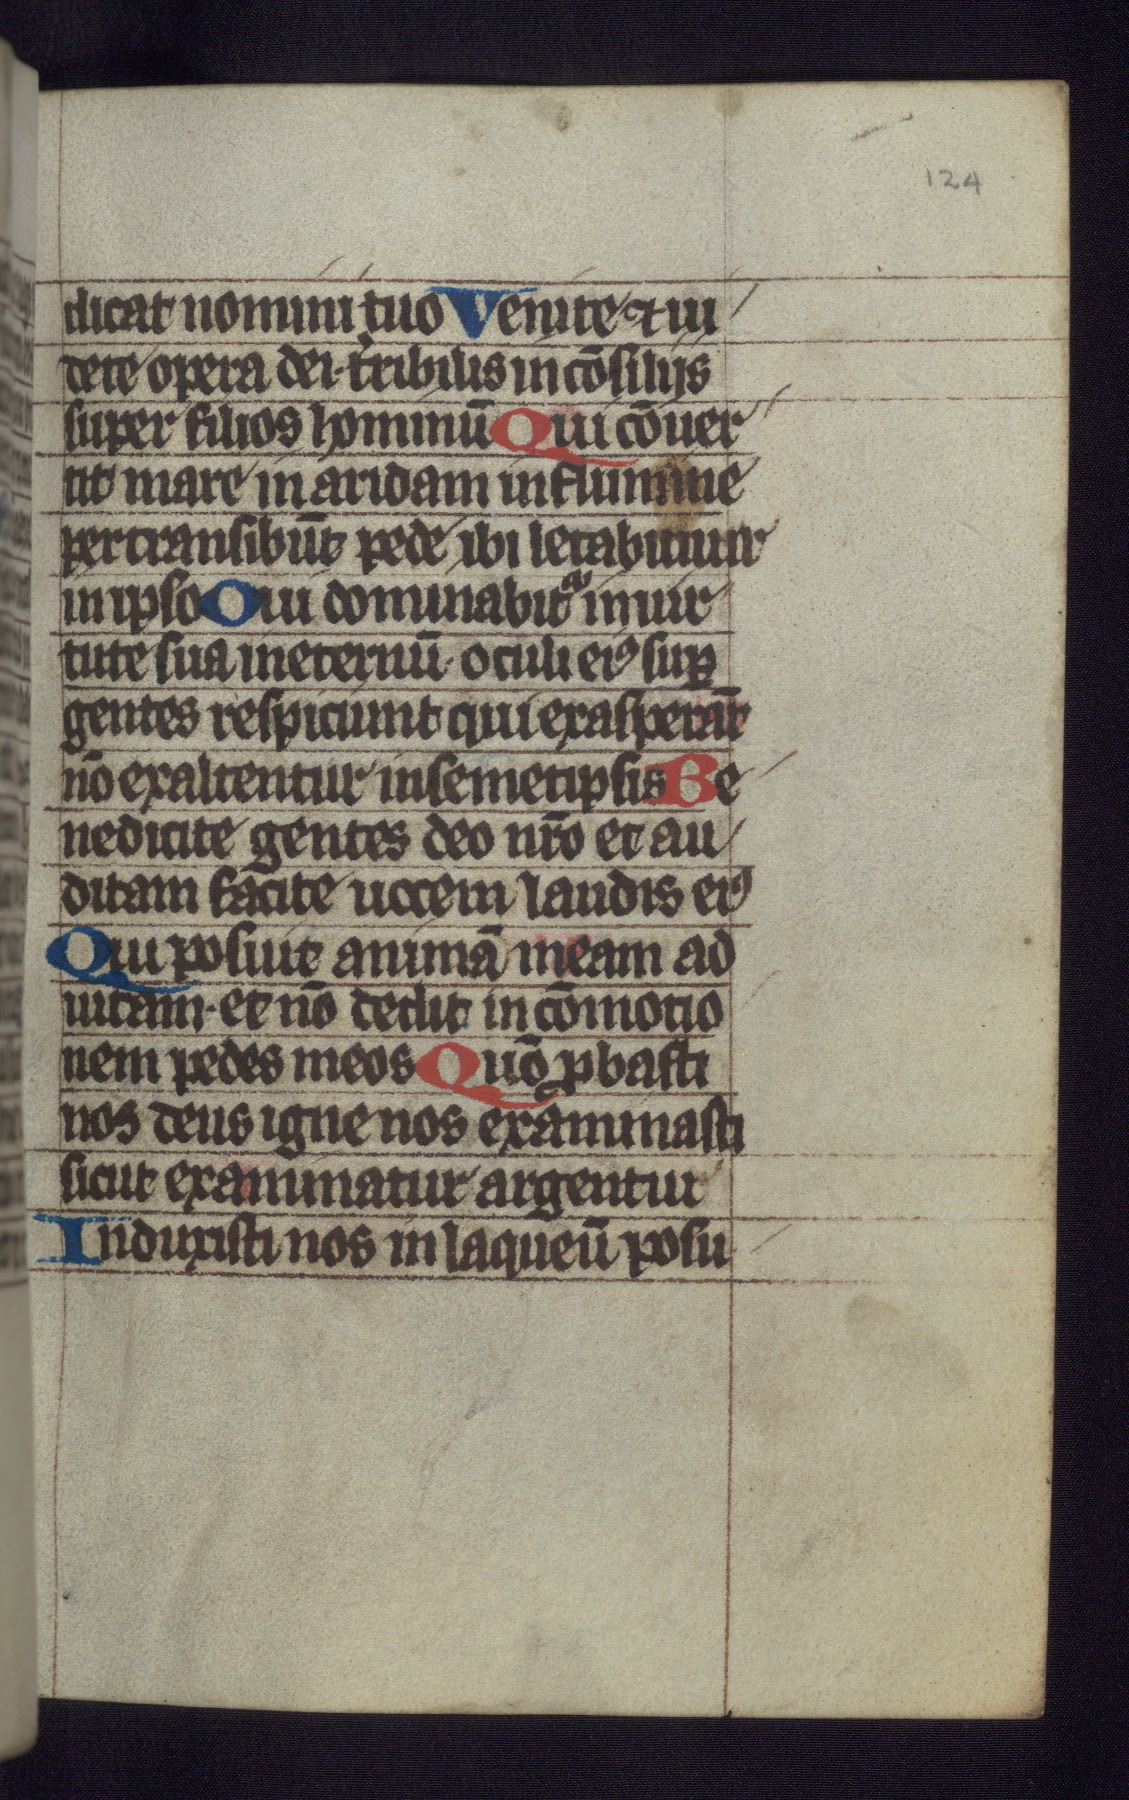 124
dicat nomini tuo Venite ⁊ ui
dete opera dei· t̾ribilis in cōsilijs
super filios hominū Qui cōuer
tit mare in aridam in flumine
pertransibūt pede ibi letabimur
in ipso Qui dominabit᷑ in uir
tute sua in eternū· oculi eiꝰ suꝑ
gentes respiciunt qui exasperāt
nō exaltentur in semetipsis Be
nedicite gentes deo nr̄o et au
ditam facite uocem laudis eiꝰ
Qui posiuit animā meam ad
uitam· et nō dedit in cōmotio
nem pedes meos Quō ꝓbasti
nos deus igne nos examinasti
sicut examinatur argentur
Induxisti nos in laqueū posu